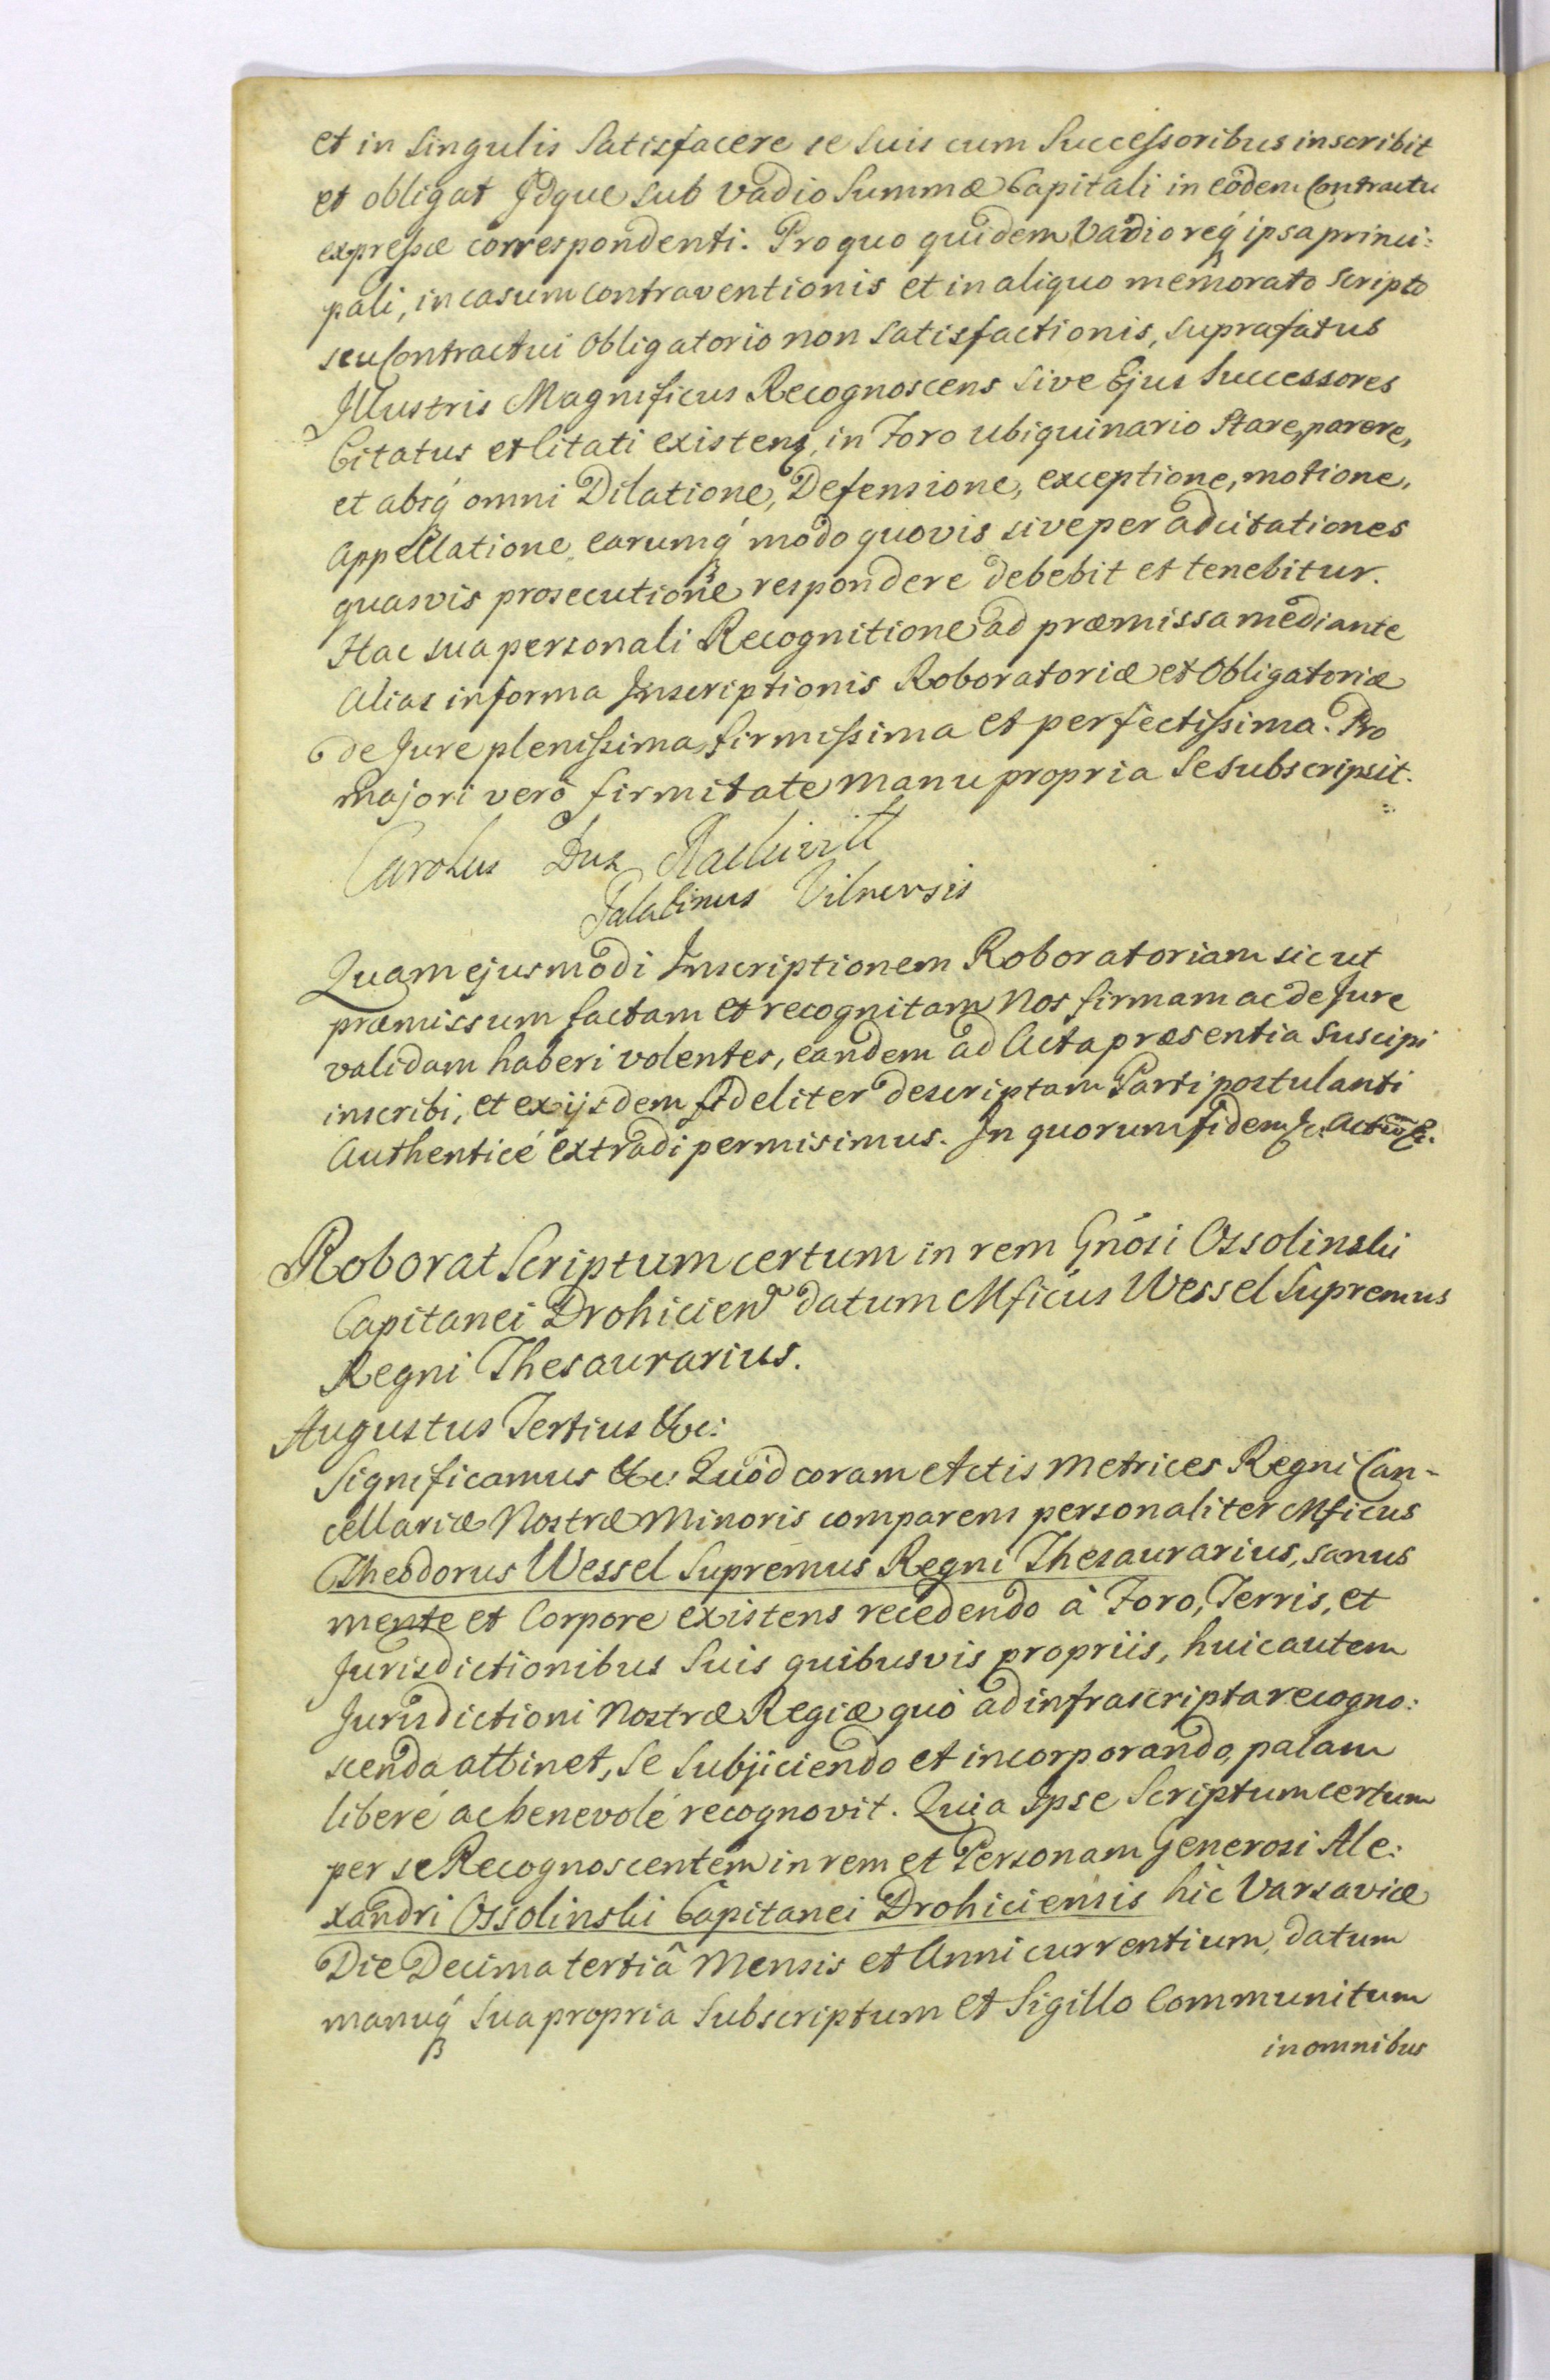 et in Singulis Satisfacere se suis cum Successoribus inscribit
et obligat Jdque sub vadio Summæ Capitali in eodem Contractu
expressæ correspondenti. Pro quo quidem Vadio reqꝫ ipsa princi:
pali, in casum contraventionis et in aliquo memorato Scripto
seu Contractui Obligatorio non satisfactionis, suprafatus
Jllustris Magnificus Recognoscens sive Ejus Successores
Citatus et Citati existenꝫ, in Foro ubiquinario Stare, parere,
et absqꝫ omni Dilatione, Defensione, exceptione, motione,
Appellatione earumqꝫ modo quovis sive per adcitationes
quasvis prosecutione respondere debebit et tenebitur.
Hac sua personali Recognitione ad præmissa mediante
Alias in forma Jnscriptionis Roboratoriæ et Obligatoriæ
de Jure plenissima, firmissima et perfectissima. Pro
majori verò firmitate manu propria Se subscripsit.
Carolus Dux Radziwill
Palatinus Vilnensis
Quam ejusmodi Jnscriptionem Roboratoriam sic ut
præmissum factam et recognitam Nos firmam ac de Jure
validam haberi volentes, eandem ad Acta præsentia suscipi
inscribi, et ex ijsdem fideliter descriptam Parti postulanti
Authenticé extradi permisimus. Jn quorum fidem &c. Actum &c.
Roborat Scriptum certum in rem Gnōsi Ossolinski
Capitanei Drohicien datum Mficus Wessel Supremus
Regni Thesaurarius.
Augustus Tertius &c:
Significamus &c. Quòd coram Actis Metrices Regni Can-
cellariæ Nostræ Minoris comparens personaliter Mficus
Theodorus Wessel Supremus Regni Thesaurarius, sanus
mente et Corpore existens recedendo à Foro, Terris, et
Jurisdictionibus Suis quibusvis propriis, huic autem
Jurisdictioni Nostræ Regiæ quò ad infrascripta recogno:
scenda attinet, se Subjiciendo et incorporando, palam
liberé ac benevolé recognovit. Quia Ipse Scriptum certum
per se Recognoscentem in rem et Personam Generosi Ale:
xandri Ossolinski Capitanei Drohiciensis hic Varsaviæ
Die Decima tertiâ Mensis et Anni currentium, datum
manuqꝫ Sua propria Subscriptum et Sigillo Communitum
in omnibus